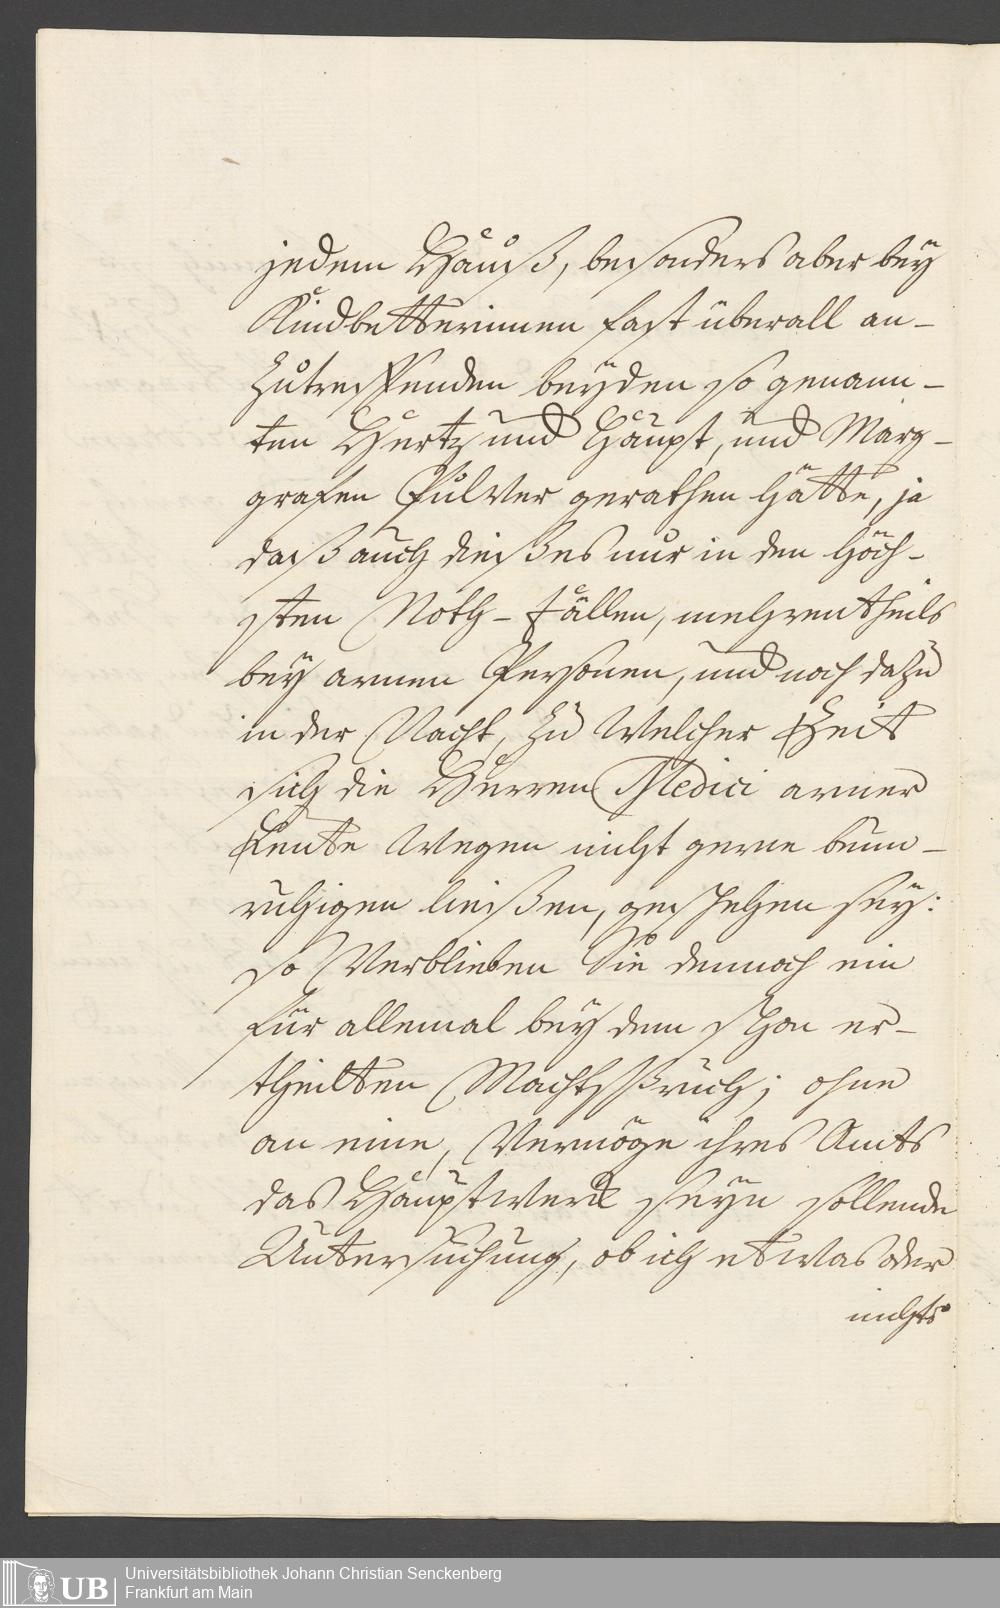 jedem Hauß, besonders aber bey
Kindbetterinnen fast überall an-
zutreffenden beyden so genann-
ten Hertz und Haupt, und Marg-
grafen Pulver gerathen hätte, ja
daß auch dießes nur in den höch-
sten Noth-fällen, mehrentheils
bey armen Personen, und noch dazu
in der Nacht, zu Welcher Zeit
sich die Herren Medici armer
Leute Wegen nicht gerne beun-
ruhigen ließen, geschehen sey:
so Verblieben Sie dennoch ein
für allemal bey dem schon er-
theilten Machtspruch; ohne
an eine, Vermöge ihres Amts
das Hauptwerk seyn sollende
Untersuchung, ob ich etwas oder
nichts
UB Universitätsbibliothek Johann Christian Senckenberg
Frankfurt am Main